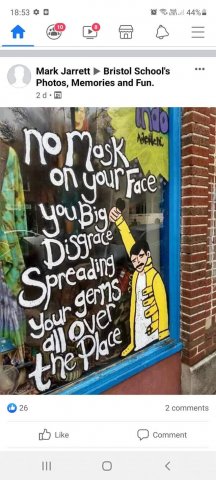 18:53
44%
10
8
Mark Jarrett ▶ Bristol School's
Photos, Memories and Fun.
2 d
no Mask
on your Face
you Big
Disgrace
Spreading
your germs
all over
the Place
26
2 comments
Like
Comment